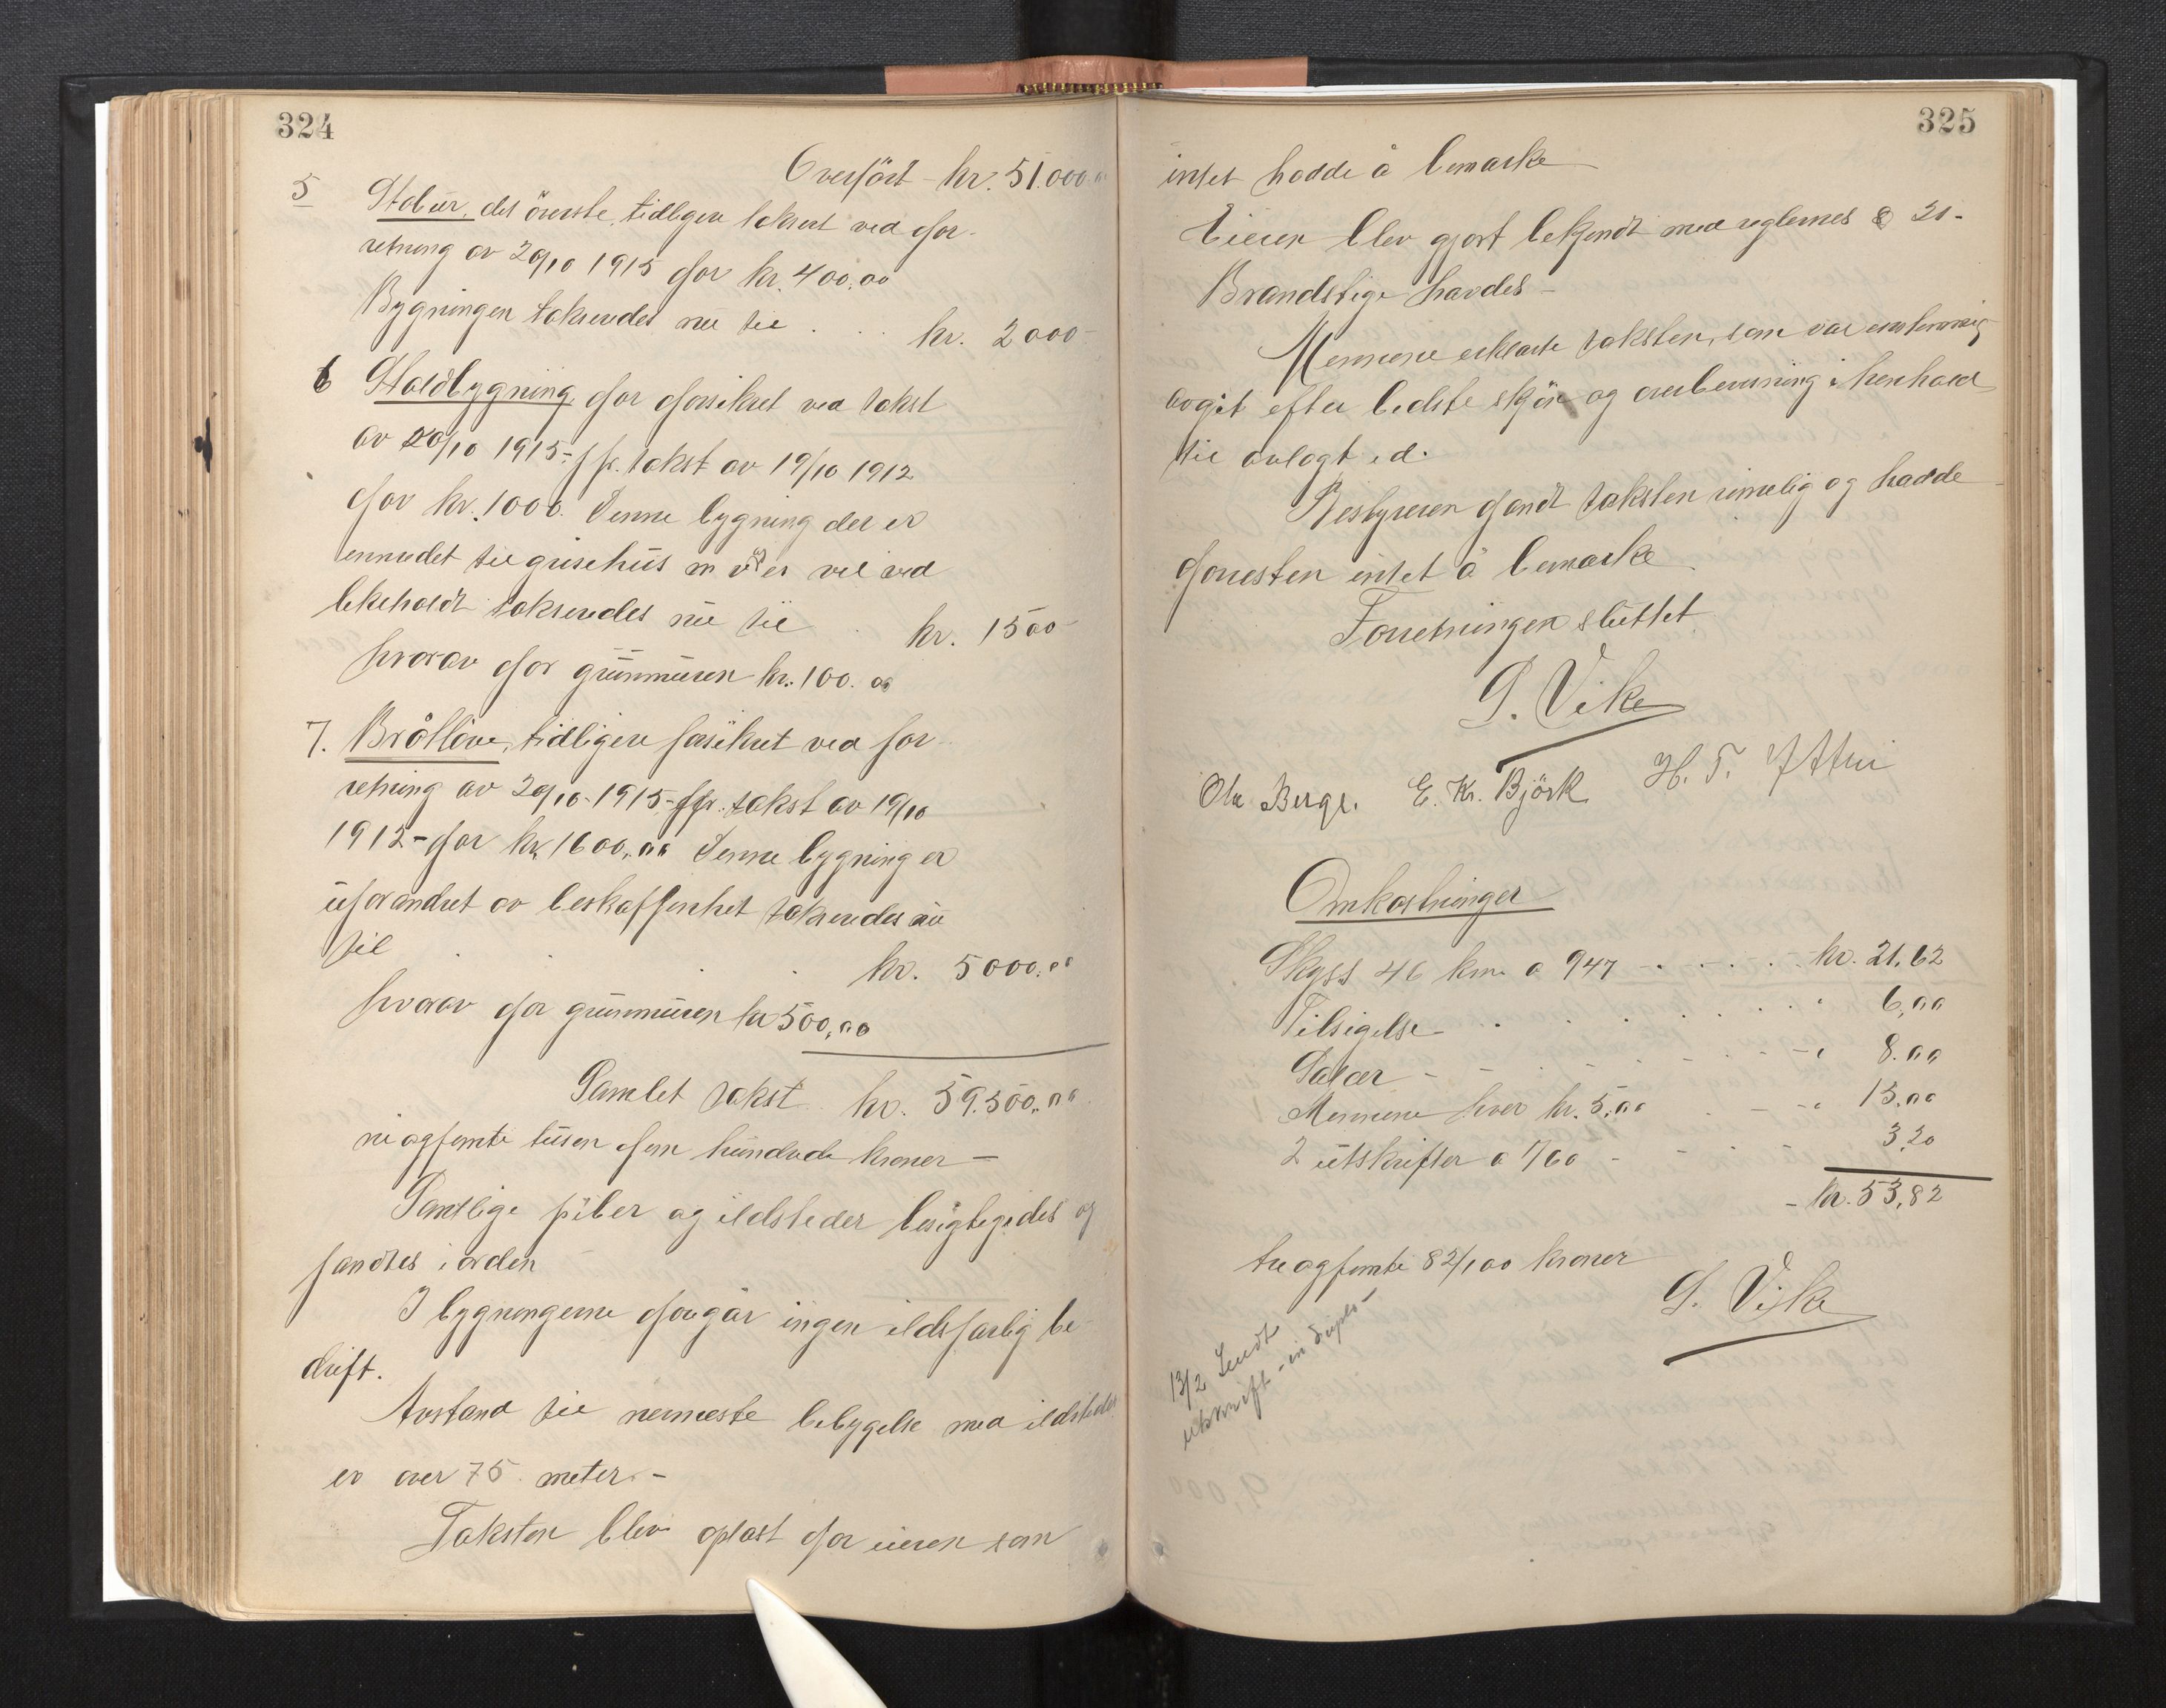 324
Overført kr. 51.000
5 Stabur, det øverste, tidligere taksert ved for-
retning av 20/10 1915 for kr. 400,00
Bygningen takseredes nu til . . . kr. 2000-
6 Staldbygning for forsikret ved takst
av 20/10 1915 - jfr. takst av 19/10 1912
for kr. 1000. Denne bygning der er
innredet til grisehus m v er vel ved
likeholdt takseredes nu til . kr. 1500
hvorav for grunmuren kr. 100.00
7. Bråtløe, tidligere forsikret ved for-
retning av 20/10-1915-jfr. takst av 19/10
1912-for kr. 1600,00 Denne bygning er
uforandret av beskaffenhet takseredes nu
til . . . kr. 5000.00
hvorav for grunmuren kr 500,00
Samlet takst kr. 59.500,00
niogfemti tusen fem hundrede kroner -
Samtlige piber og ildsteder besigtigedes og
fandtes i orden
I bygningerne foregår ingen ildsfarlig be-
drift.
Avstand til nermeste bebygelse med ildsteder
er over 75 meter. -
Taksten blev oplæst for eieren som
325
intet hadde å bemærke
Eieren blev gjort bekjendt med reglernes § 21-
Brandstige havdes -
Mennene erklærte taksten, som var enstemmig
avgit efter bedste skjøn og overbevisning i henhold
til avlagt ed.
Bestyreren fandt taksten rimelig og hadde
foresten intet å bemærke.
Forretningen sluttet
S. Vike
Ola Berge. E. Kr. Björk H. T. Ystui
Omkostninger
Skyss 46 km. a 947 - . . . . kr. 21,62
Tilsigelse . . . . . . . 6,00
Salær - - . . . . . 8.00
Mennene hver kr. 5,00 . - - 15,00
2 utskrifter a 1/60 - - . - - 3,20
- kr. 53,82
treogfemti 82/100 kroner
S. Vike
13/2 Sendt
utskrift - in duplo -